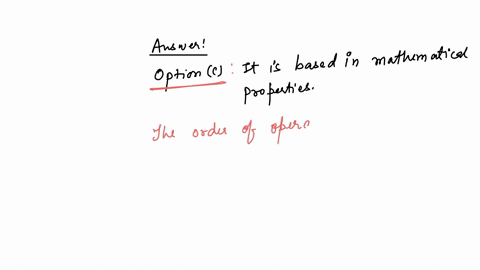 Answer!
Option (c) : It is based in mathematical
properties.
The order of opera